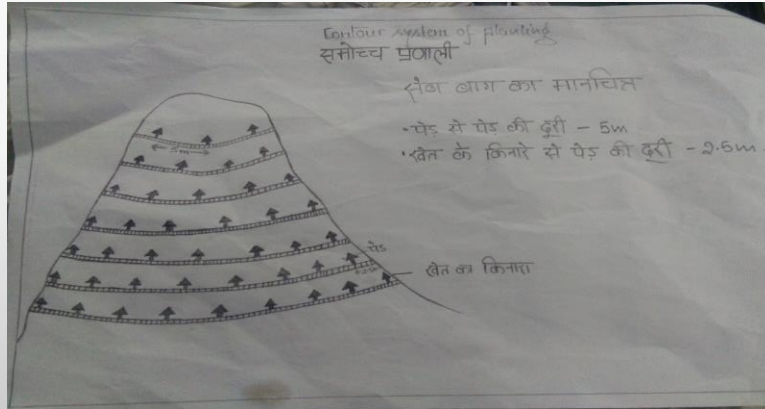 Contour system of planting
समोच्च प्रणाली
सेब बाग का मानचित्र
• पेड़ से पेड़ की दूरी - 5m
• खेत के किनारे से पेड़ की दूरी - 2.5m
5m
पेड़
खेत का किनारा